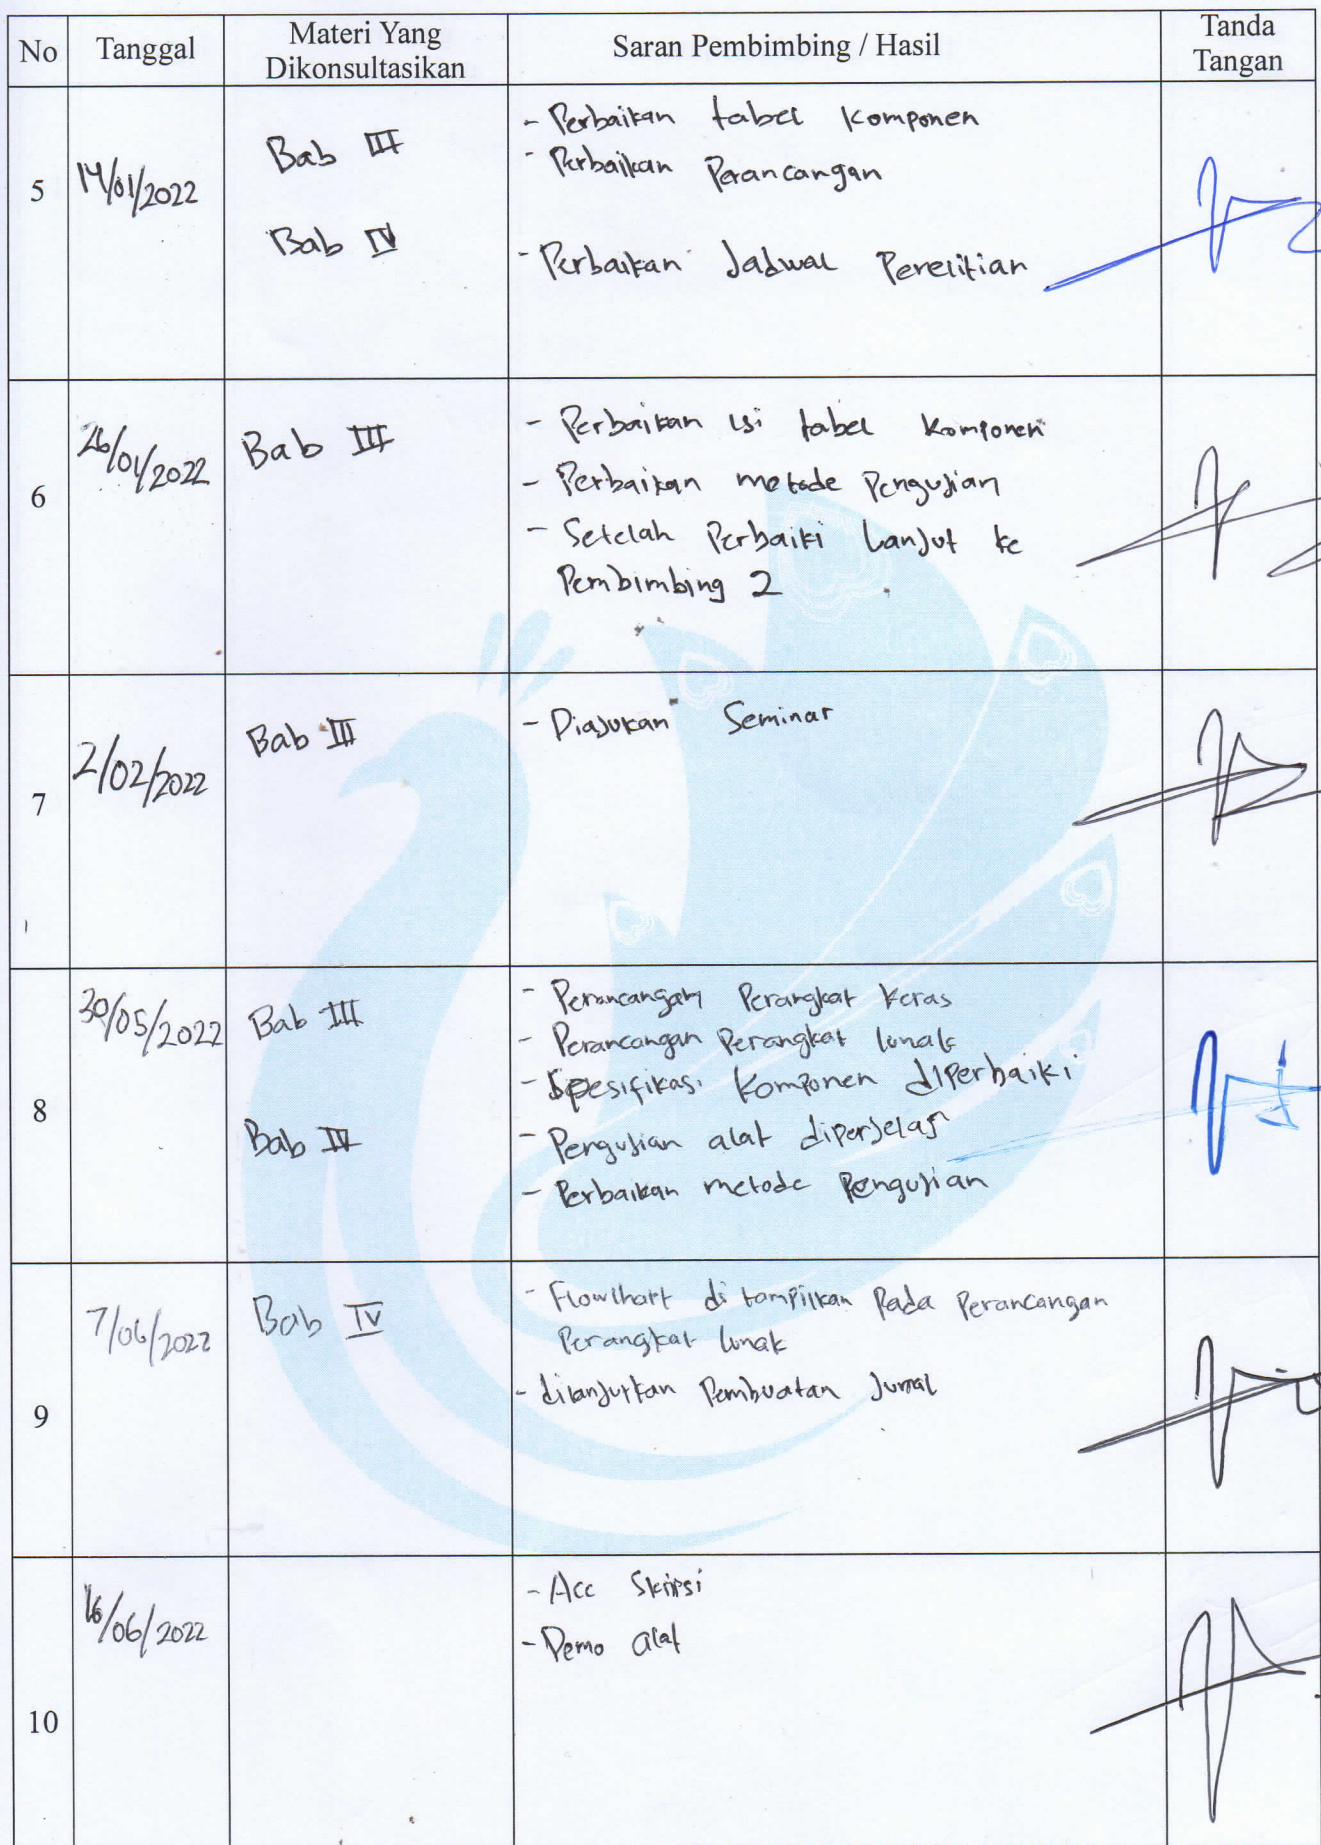 No Tanggal Materi Yang Dikonsultasikan Saran Pembimbing / Hasil Tanda Tangan
5 14/01/2022
Bab III
- Perbaikan tabel Komponen
- Perbaikan Perancangan
Bab IV
- Perbaikan Jadwal Penelitian
6 26/01/2022 Bab III
- Perbaikan isi tabel Komponen
- Perbaikan metode Pengujian
- Setelah Perbaiki Lanjut ke
Pembimbing 2
7 2/02/2022 Bab III
- Diajukan Seminar
8 30/05/2022 Bab III
- Perancangan Perangkat Keras
- Perancangan Perangkat lunak
- Spesifikasi Komponen diperbaiki
Bab IV
- Pengujian alat diperjelas
- Perbaikan metode Pengujian
9 7/06/2022 Bab IV
- Flowchart di tampilkan Pada Perancangan
Perangkat lunak
- dilanjutkan Pembuatan Jurnal
10 16/06/2022
- Acc Skripsi
- Demo alat